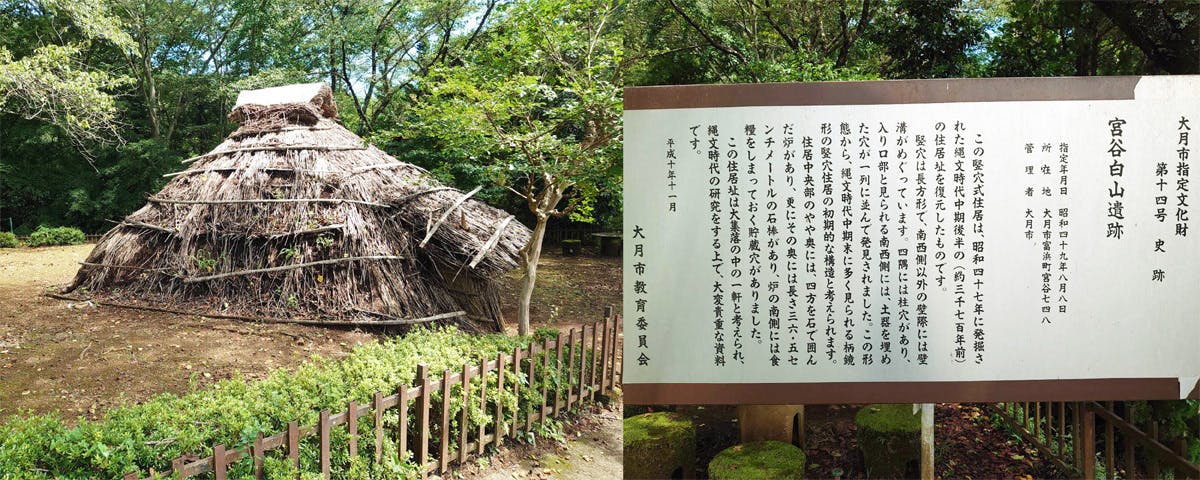 大月市指定文化財
第十四号 史 跡
宮谷白山遺跡
指定年月日 昭和四十九年八月八日
所 在 地 大月市富浜町宮谷七四八
管 理 者 大月市
この竪穴式住居は、昭和四十七年に発掘さ
れた縄文時代中期後半の(約三千七百年前)
の住居址を復元したものです。
竪穴は長方形で、南西側以外の壁際には壁
溝がめぐっています。四隅には柱穴があり、
入り口部と見られる南西側には、土器を埋め
た穴が一列に並んで発見されました。この形
態から、縄文時代中期末に多く見られる柄鏡
形の竪穴住居の初期的な構造と考えられます。
住居中央部のやや奥には、四方を石で囲ん
だ炉があり、更にその奥には長さ三六・五セ
ンチメートルの石棒があり、炉の南側には食
糧をしまっておく貯蔵穴がありました。
この住居址は大集落の中の一軒と考えられ、
縄文時代の研究をする上で、大変貴重な資料
です。
平成十年十一月
大月市教育委員会